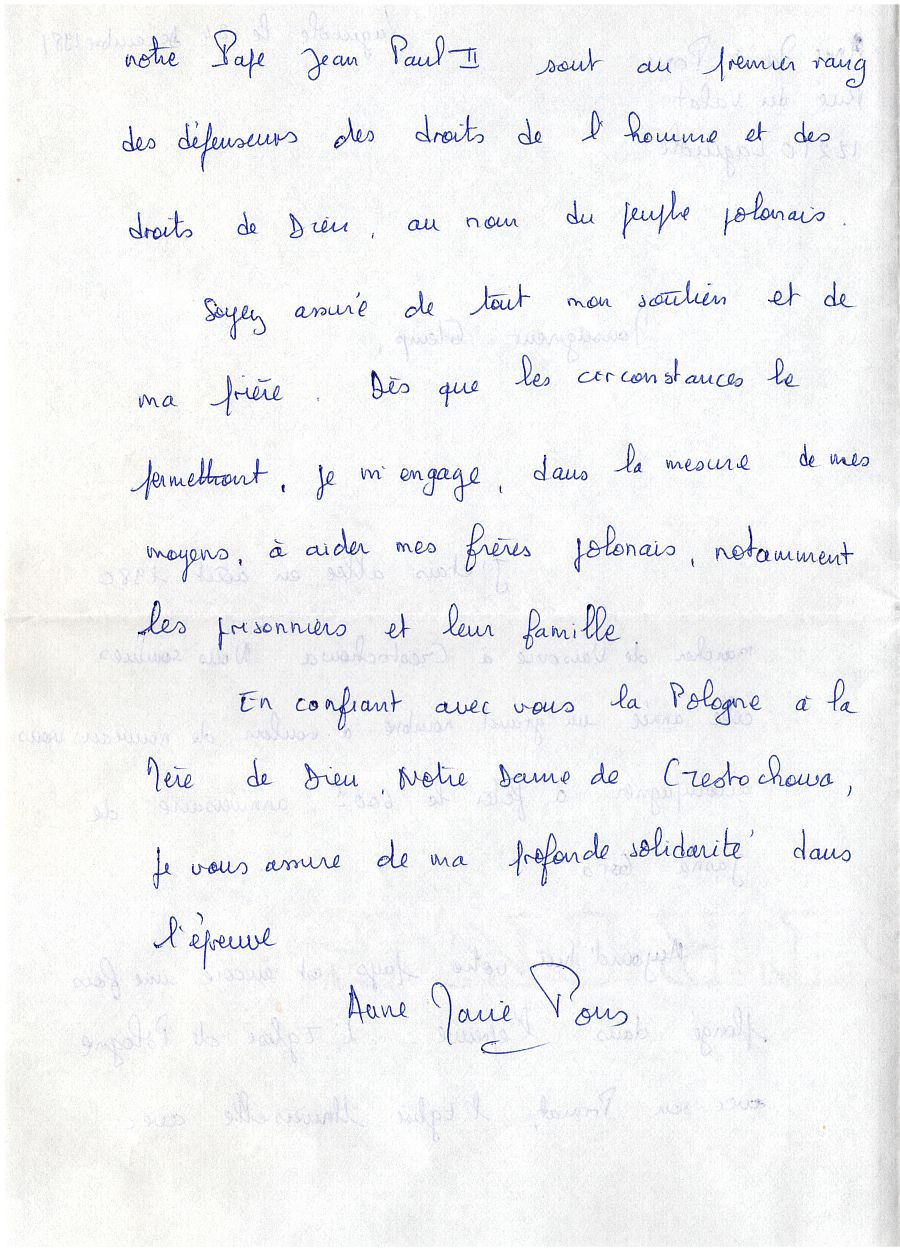 notre Pape Jean Paul II sont au premier rang
des défenseurs des droits de l'homme et des
droits de Dieu, au nom du peuple polonais.
Soyez assuré de tout mon soutien et de
ma prière. Dès que les circonstances le
permettront, je m'engage, dans la mesure de mes
moyens, à aider mes frères polonais, notamment
les prisonniers et leur famille.
En confiant avec vous la Pologne à la
Mère de Dieu, Notre Dame de Czestochowa,
je vous assure de ma profonde solidarité dans
l'épreuve
Anne Marie Pons